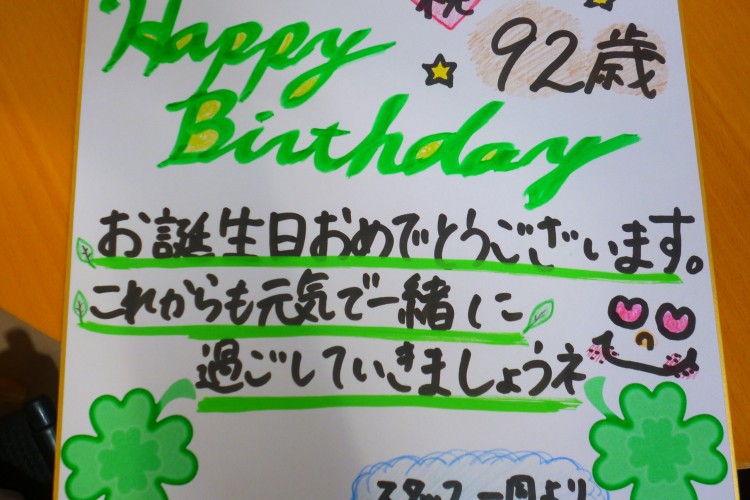 祝
Happy
92歳
Birthday
お誕生日おめでとうございます。
これからも元気で一緒に
過ごしていきましょうネ
スタッフ一同より